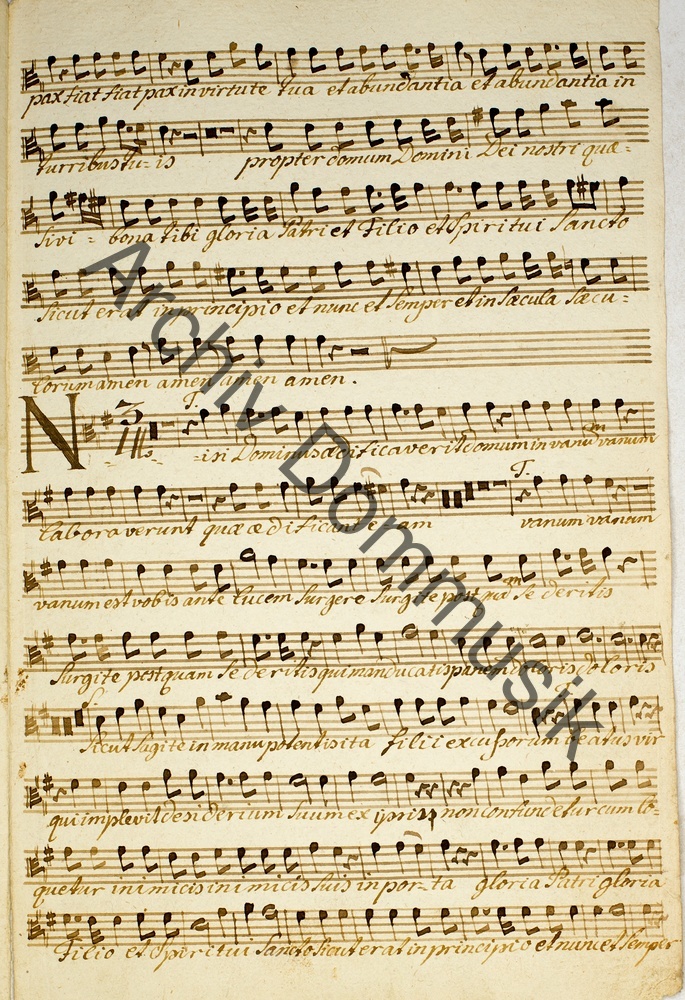 pax fiat fiat pax in virtute tua et abundantia et abundantia in
turribus tu-is propter domum Domini Dei nostri quæ-
sivi - bona tibi gloria Patri et Filio et Spiritui Sancto
Sicut erat in principio et nunc et Semper et in Sæcula Sæcu-
lorum amen amen amen amen.
T.
Nisi Dominus ædificaverit domum in vanum vanum
T.
laboraverunt quæ ædificant e-am vanum vanum
vanum est vobis ante lucem Surgere Surgite postquam Sederitis
Surgite postquam Sederitis qui manducatis panem doloris doloris
S.
Sicut Sagitte in manu potentis ita filii excussorum beatus vir
qui implevit desiderium Suum ex ipsis non confundetur cum lo-
quetur inimicis inimicis Suis in por-ta gloria Patri gloria
Filio et Spiritui Sancto Sicut erat in principio et nunc et Semper
Archiv Dommusik